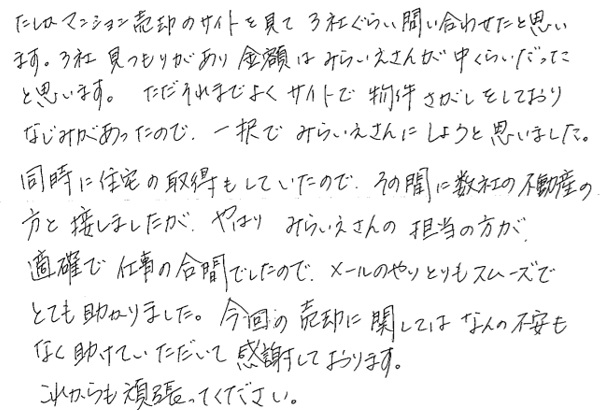 たしかマンション売却のサイトを見て3社ぐらい問い合わせたと思い
ます。3社見つもりがあり金額はみらいえさんが中くらいだった
と思います。ただそれまでよくサイトで物件さがしをしており
なじみがあったので、一択でみらいえさんにしようと思いました。
同時に住宅の取得もしていたので、その間に数社の不動産の
方と接しましたが、やはりみらいえさんの担当の方が、
適確で仕事の合間でしたので、メールのやりとりもスムーズで
とても助かりました。今回の売却に関してはなんの不安も
なく助けていただいて感謝しております。
これからも頑張ってください。